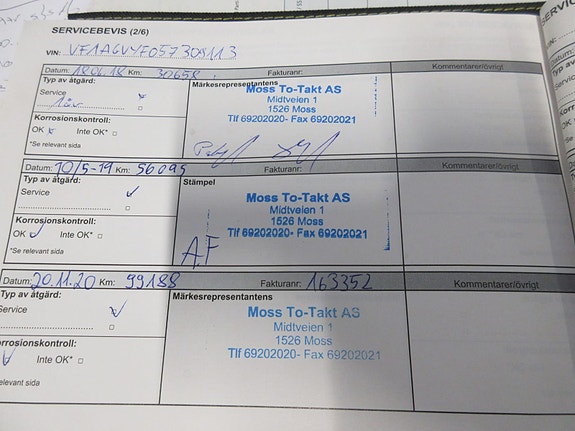 SERVICEBEVIS (2/6)
VIN: VF1AGVYF057309113
Datum: 18.06.18 Km: 30658 Fakturanr: Kommentarer/övrigt
Typ av åtgärd: Märkesrepresentantens
Service
Moss To-Takt AS
Midtveien 1
1526 Moss
Tlf 69202020- Fax 69202021
Korrosionskontroll:
OK Inte OK*
*Se relevant sida
Datum: 10/5-19 Km: 56095 Fakturanr: Kommentarer/övrigt
Typ av åtgärd: Stämpel
Service
Moss To-Takt AS
Midtveien 1
1526 Moss
Tlf 69202020- Fax 69202021
Korrosionskontroll:
OK Inte OK*
*Se relevant sida
A.F
Datum: 20.11.20 Km: 99188 Fakturanr: 163352 Kommentarer/övrigt
Typ av åtgärd: Märkesrepresentantens
Service
Moss To-Takt AS
Midtveien 1
1526 Moss
Tlf 69202020- Fax 69202021
orrosionskontroll:
Inte OK*
relevant sida